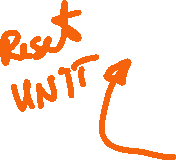 Reset
UNIT